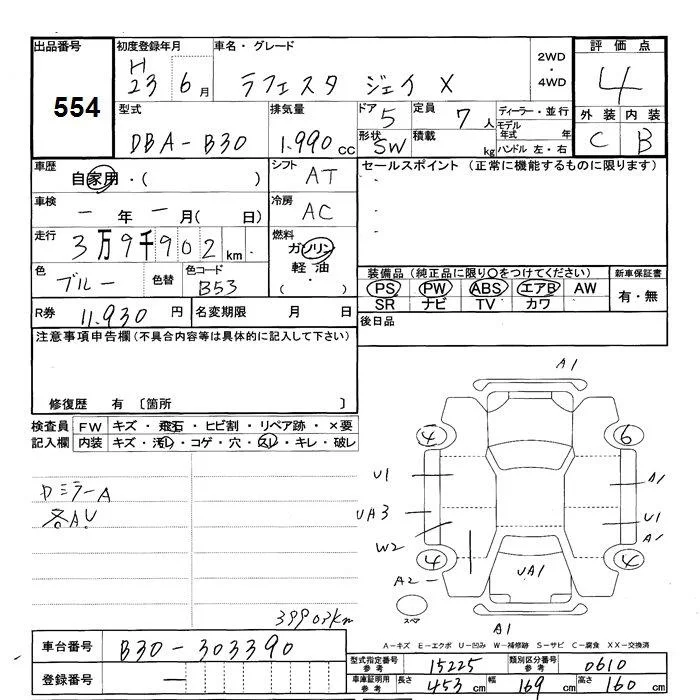 出品番号
554
初度登録年月
H 23 6月
車名・グレード
ラフェスタ ジョイX
2WD
・
4WD
評価点
4
外装 内装
C B
型式
DBA-B30
排気量
1.990 cc
ドア 5
定員 7 人
形状 SW
積載 kg
ディーラー・並行
モデル年式 年
ハンドル 左・右
車歴
自家用・( )
シフト
AT
セールスポイント (正常に機能するものに限ります)
車検
- 年 - 月( 日)
冷房
AC
走行
3万9千902 km
燃料
ガソリン
軽油
( )
色
ブルー
色替
色コード
B53
装備品(純正品に限り○をつけてください)
新車保証書
PS PW ABS エアB AW
SR ナビ TV カワ
有・無
R券 11,930 円
名変期限 月 日
後日品
注意事項申告欄(不具合内容等は具体的に記入して下さい)
修復歴 有 〔箇所 〕
検査員記入欄
FW キズ・飛石・ヒビ割・リペア跡・×要
内装 キズ・汚レ・コゲ・穴・スレ・キレ・破レ
ミラーA
各AU
39903km
A1
4 6
U1 A1
UA3 U1
W2 A1
4 4
A2 UA1
スペア
A1
A-キズ E-エクボ U-凹み W-補修跡 S-サビ C-腐食 XX-交換済
車台番号 B30-303390
登録番号 -
型式指定番号参考 15225
類別区分番号参考 0610
車庫証明用参考 長さ 453 cm 幅 169 cm 高さ 160 cm